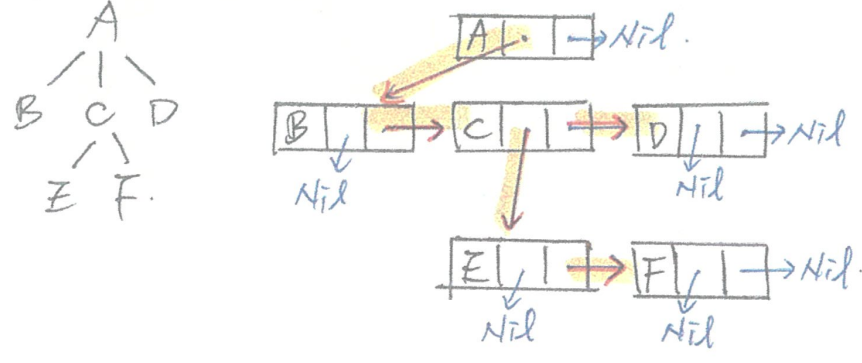 A
B C D
E F.
A Nil.
B C D Nil
Nil Nil
E F Nil.
Nil Nil